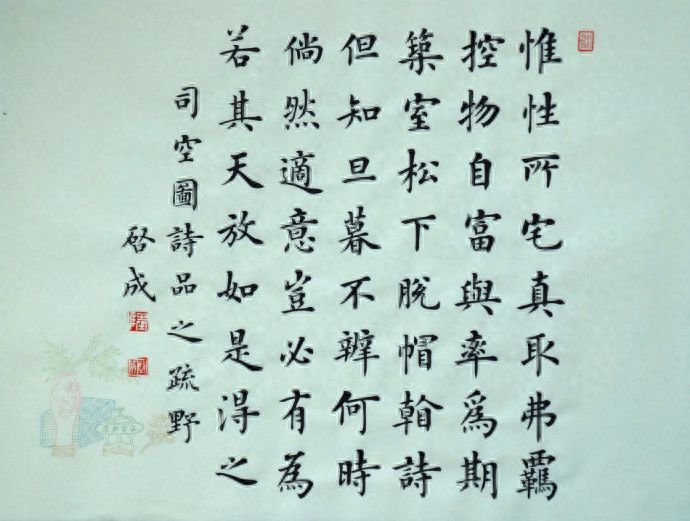 惟性所宅真取弗羈
控物自富與率爲期
築室松下脫帽詩
但知旦暮不辨何時
倘然適意豈必有為
若其天放如是得之
司空圖詩品之疏野
啓成